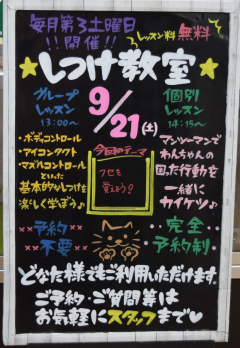 毎月第3土曜日
!!開催!!
レッスン料 無料
★しつけ教室★
グループ
レッスン
13:00〜
9/21(土)
個別
レッスン
14:15〜
・ボディコントロール
・アイコンタクト
・マズルコントロール
といった
基本的なしつけを
楽しく学ぼう♪
今回のテーマ
フセを
覚えよう?
マンツーマンで
わんちゃんの
困った行動を
一緒に
カイケツ♪
予約
不要
完全
予約制
どなた様でもご利用いただけます。
ご予約・ご質問等は
お気軽にスタッフまで♡